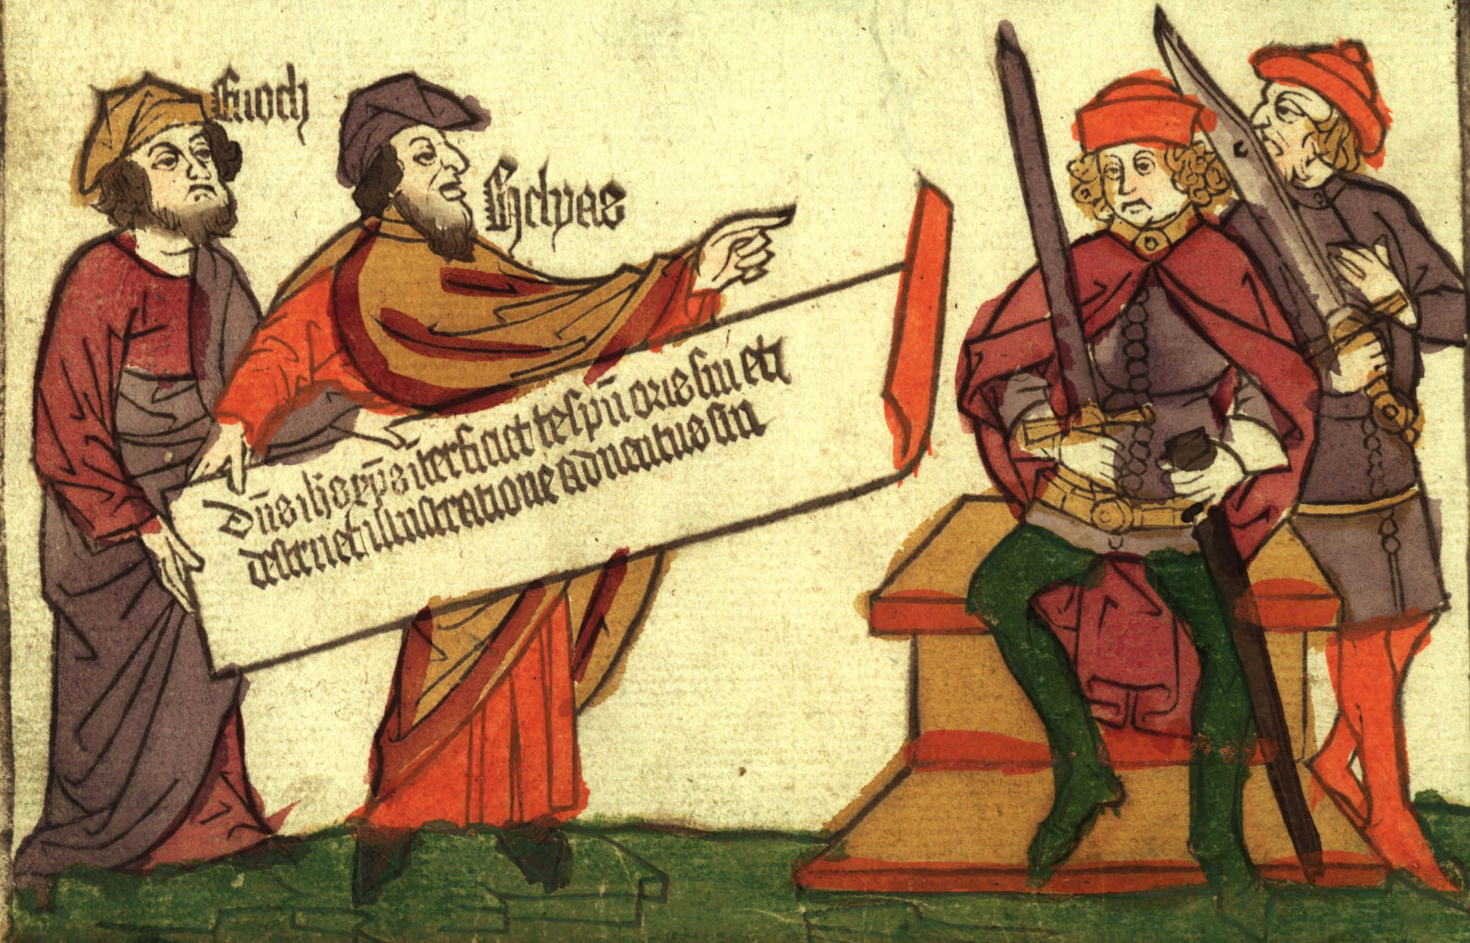 Enoch
Helyas
Dn̄s ih̄s xp̄s īterficiet te sp̄u oris sui et
destruet illustratione aduentus sui